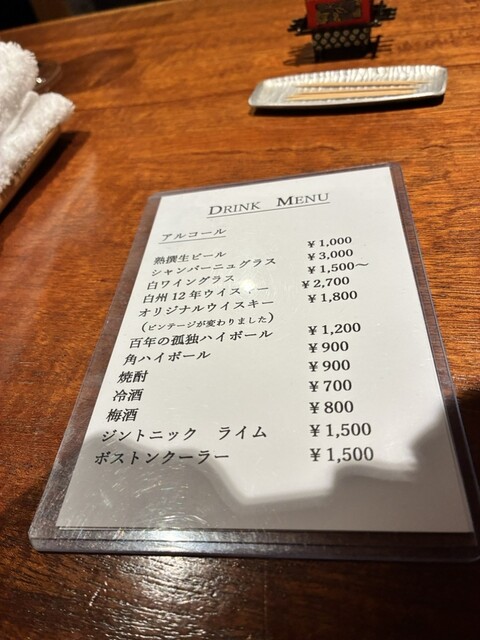 DRINK MENU
アルコール
熟撰生ビール ￥1,000
シャンパーニュグラス ￥3,000
白ワイングラス ￥1,500～
白州12年ウイスキー ￥2,700
オリジナルウイスキー ￥1,800
（ビンテージが変わりました）
百年の孤独ハイボール ￥1,200
角ハイボール ￥900
焼酎 ￥900
冷酒 ￥700
梅酒 ￥800
ジントニック ライム ￥1,500
ボストンクーラー ￥1,500